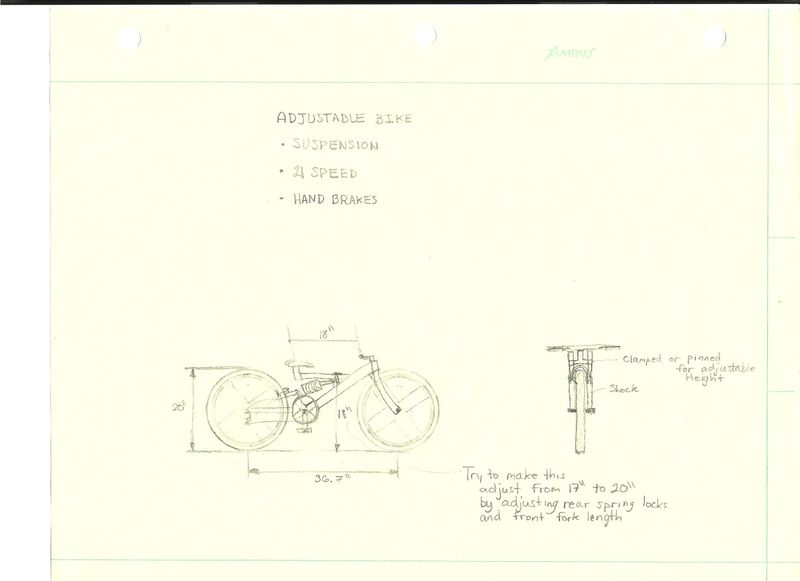 AMPAD
ADJUSTABLE BIKE
• SUSPENSION
• 21 SPEED
- HAND BRAKES
18"
20"
18"
36.7"
Clamped or pinned
for adjustable
Height
Shock
Try to make this
adjust from 17" to 20"
by adjusting rear spring locks
and front fork length